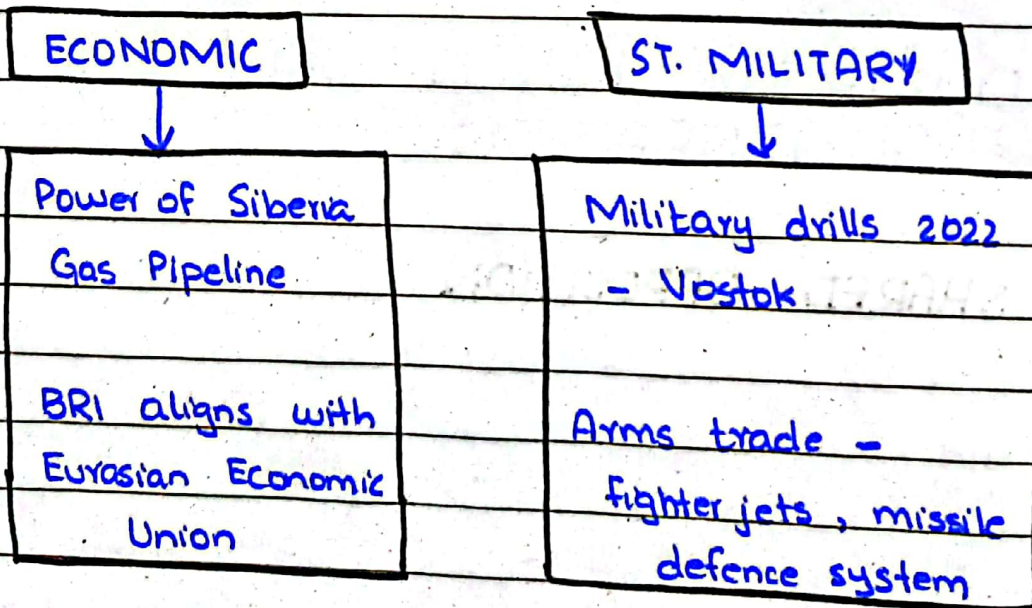 ECONOMIC
Power of Siberia
Gas Pipeline
BRI aligns with
Eurasian Economic
Union
ST. MILITARY
Military drills 2022
- Vostok
Arms trade -
fighter jets, missile
defence system